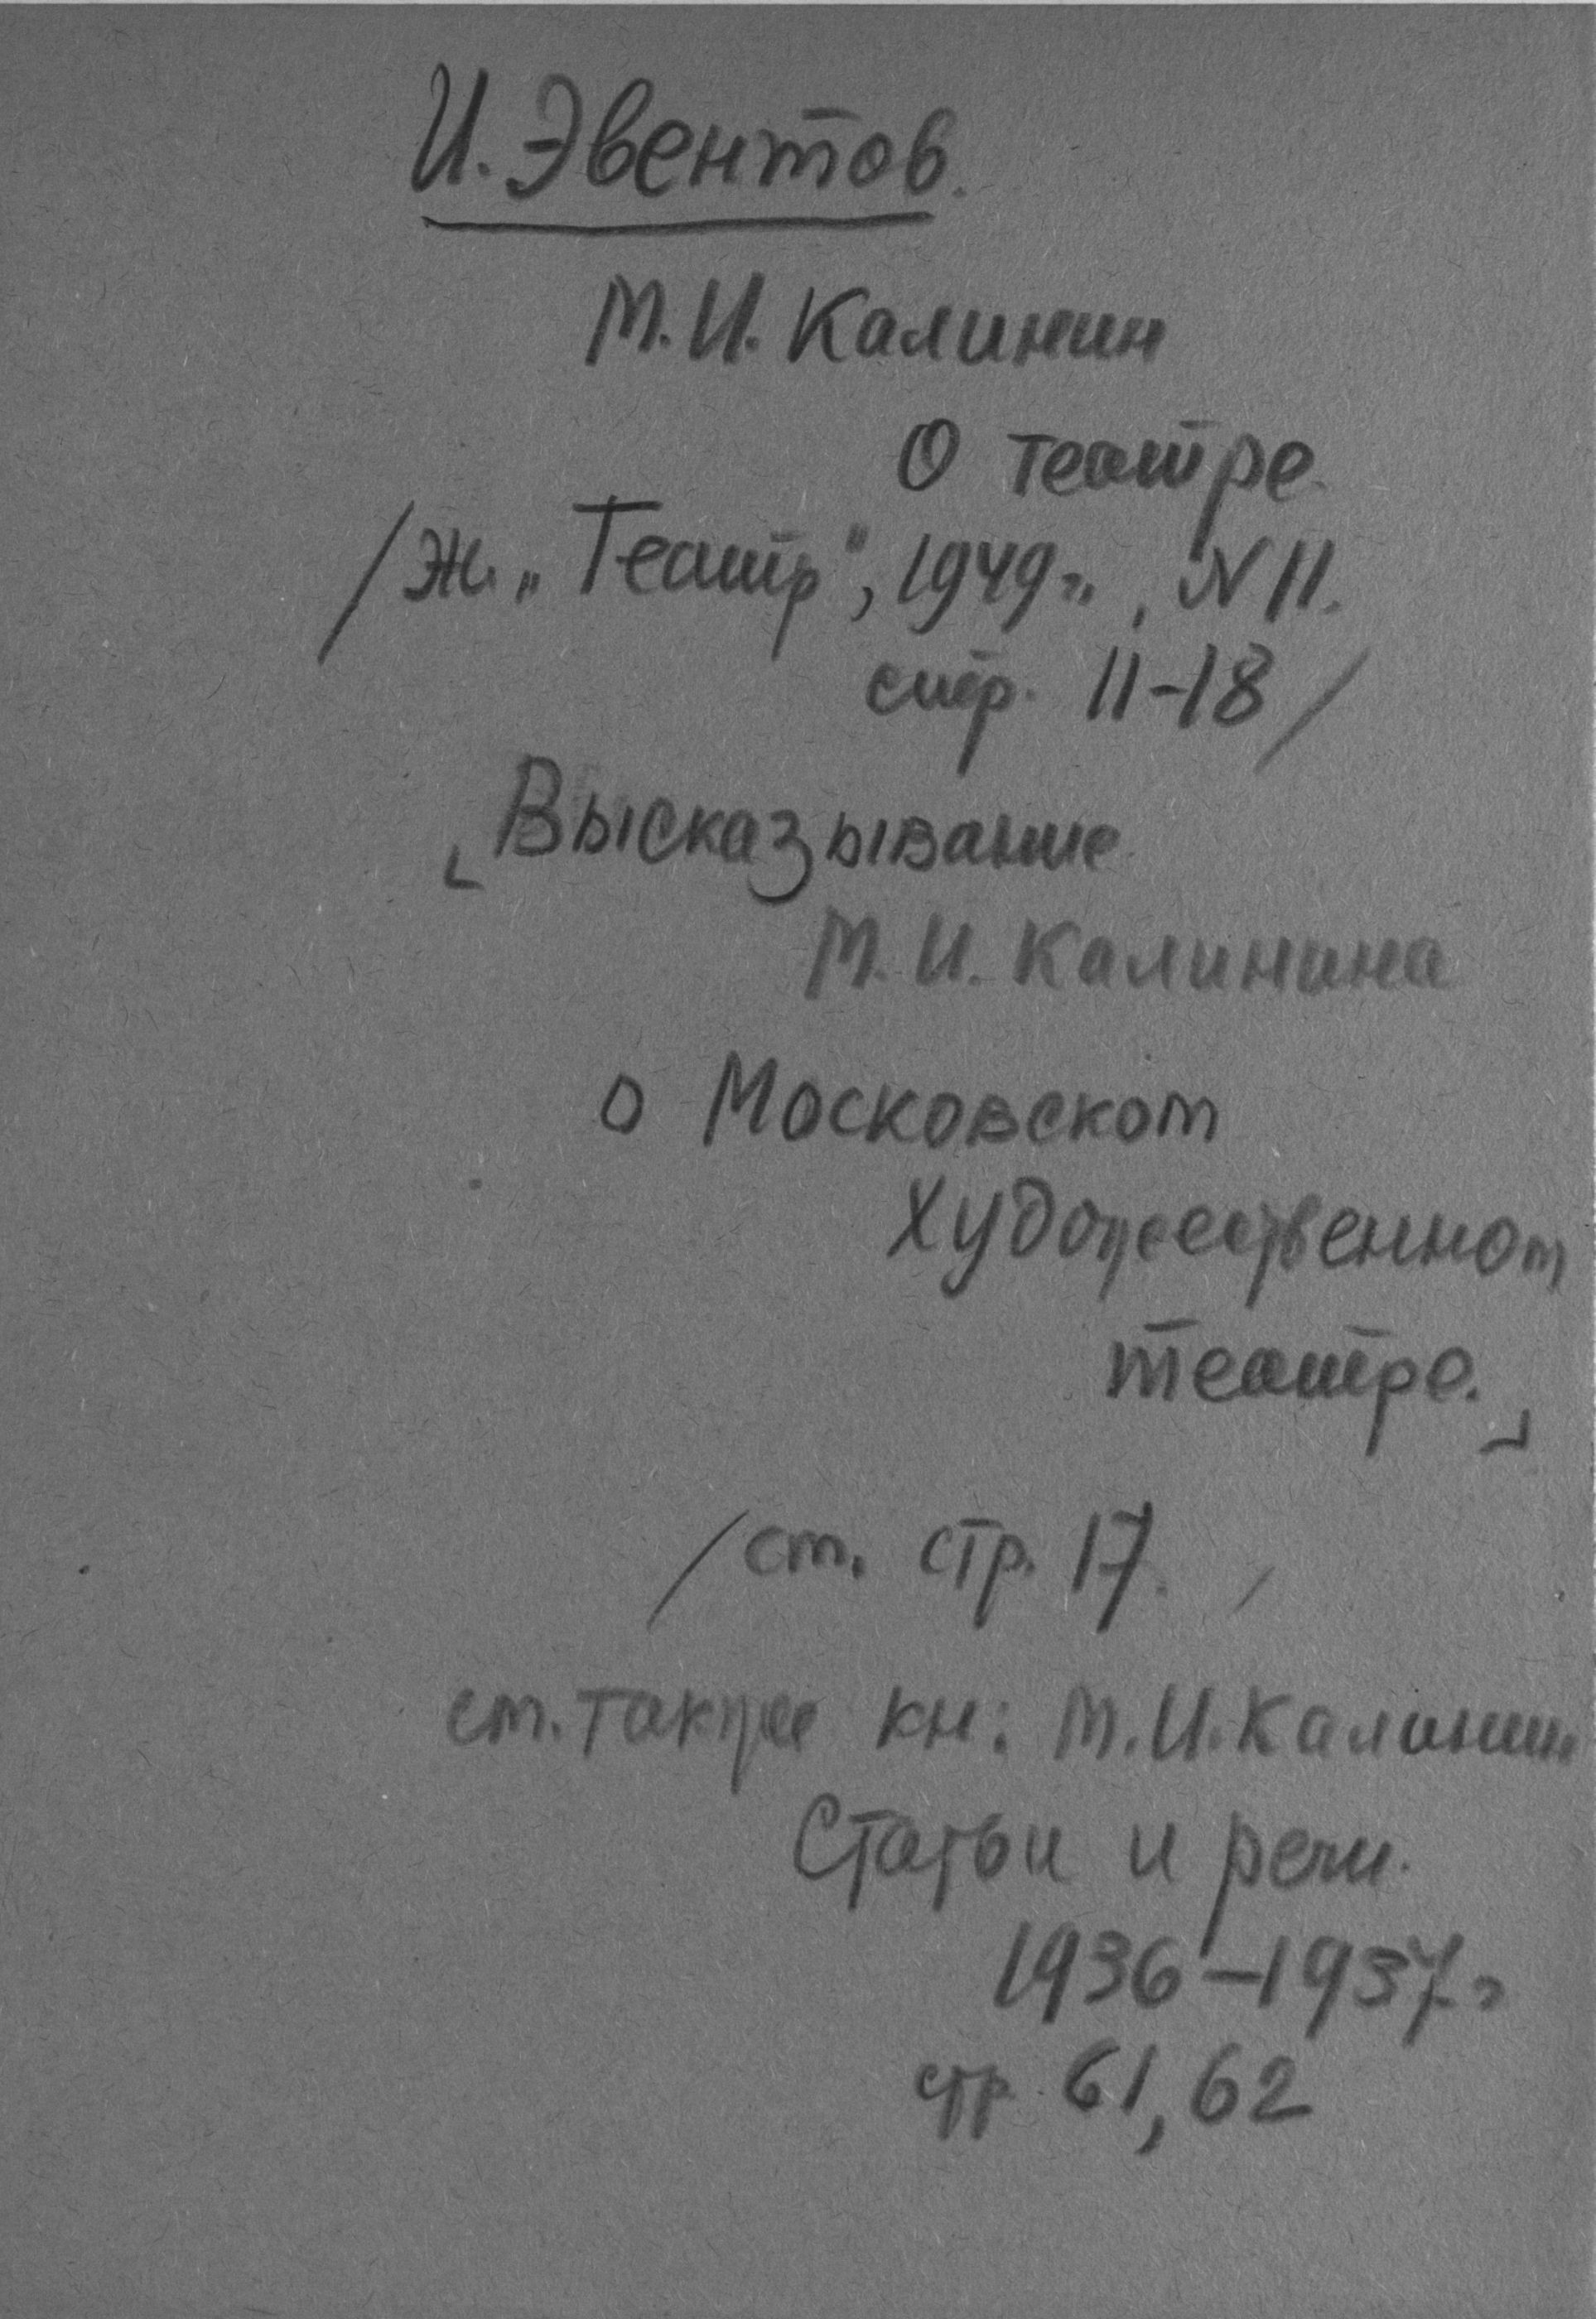 И. Эвентов.
М. И. Калинин
О театре.
/Ж. „Театр", 1949 г., № 11.
стр. 11-18/
[Высказывание
М. И. Калинина
о Московском
Художественном
театре.]
/см. стр. 17. /
см. также кн: М. И. Калинин
Статьи и речи.
1936-1937 г
стр. 61, 62